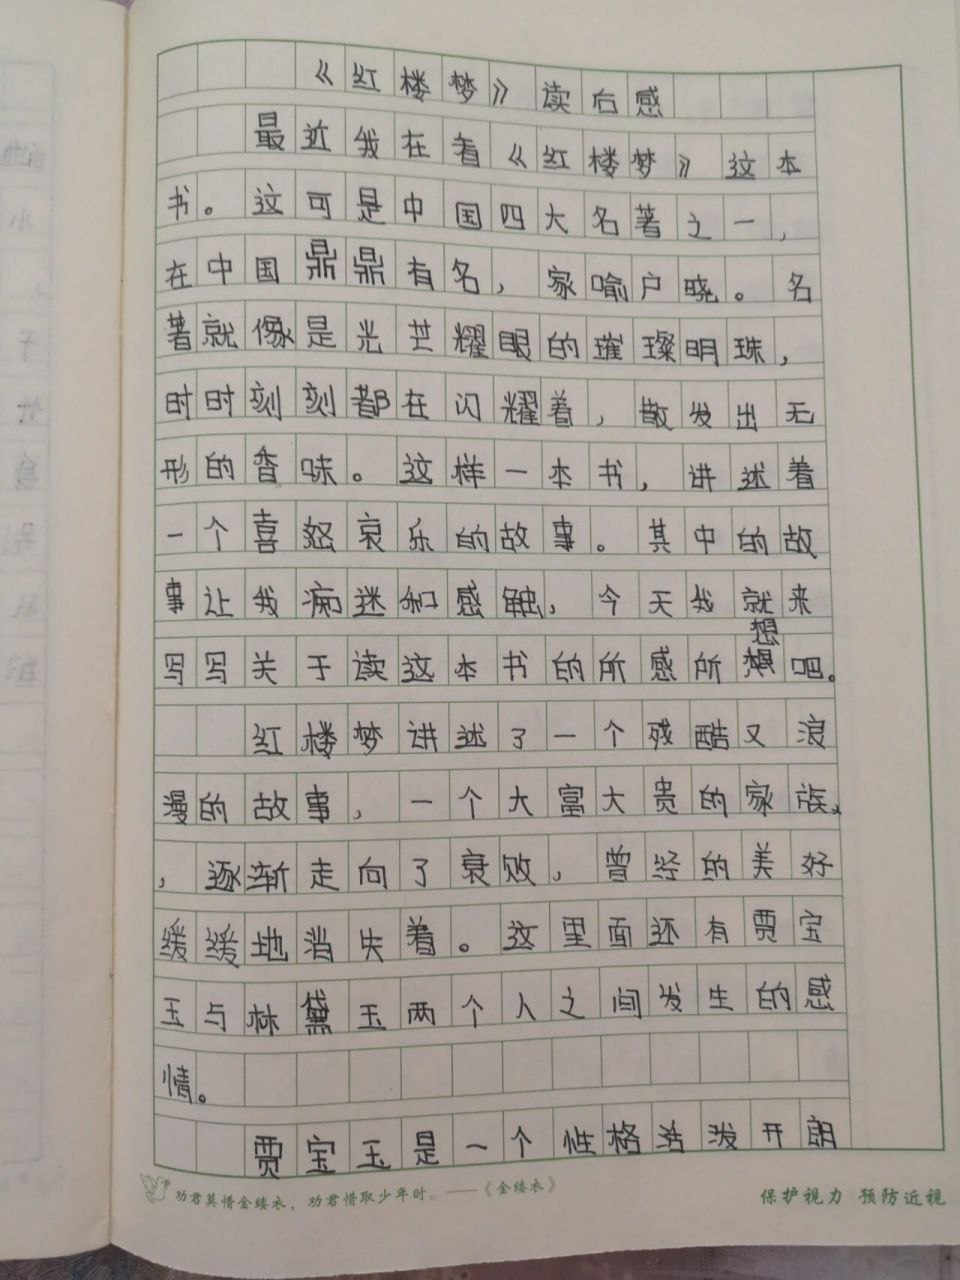 《红楼梦》读后感
最近我在看《红楼梦》这本
书。这可是中国四大名著之一，
在中国鼎鼎有名，家喻户晓。名
著就像是光芒耀眼的璀璨明珠，
时时刻刻都在闪耀着，散发出无
形的香味。这样一本书，讲述着
一个喜怒哀乐的故事。其中的故
事让我痴迷和感触，今天我就来
想
写写关于读这本书的所感所想吧。
红楼梦讲述了一个残酷又浪
漫的故事，一个大富大贵的家族
，逐渐走向了衰败，曾经的美好
缓缓地消失着。这里面还有贾宝
玉与林黛玉两个人之间发生的感
情。
贾宝玉是一个性格活泼开朗
劝君莫惜金缕衣，劝君惜取少年时。——《金缕衣》
保护视力 预防近视